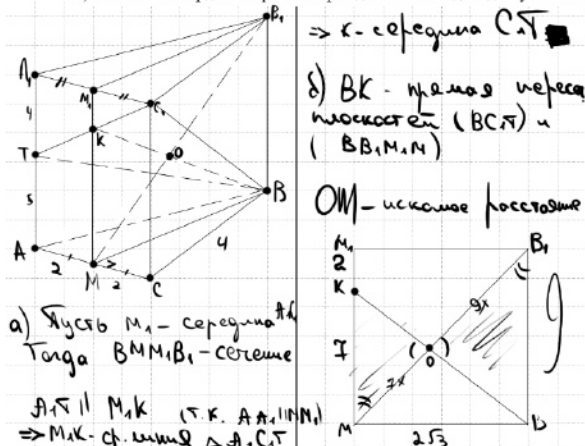 B₁
A₁
M₁
C₁
4
K
T
O
5
B
A
4
2
M
2
C
а) Пусть M₁ - середина A₁C₁
Тогда BMM₁B₁ - сечение
A₁T || M₁K (т.к. AA₁ || MM₁)
=> M₁K - ср. линия △ A₁C₁T
=> K - середина C₁T
б) BK - прямая перес
плоскостей (BC₁T) и
(BB₁M₁M)
OM - искомое расстояние
M₁
B₁
2
K
9x
7
O
9
7x
M
2√3
B